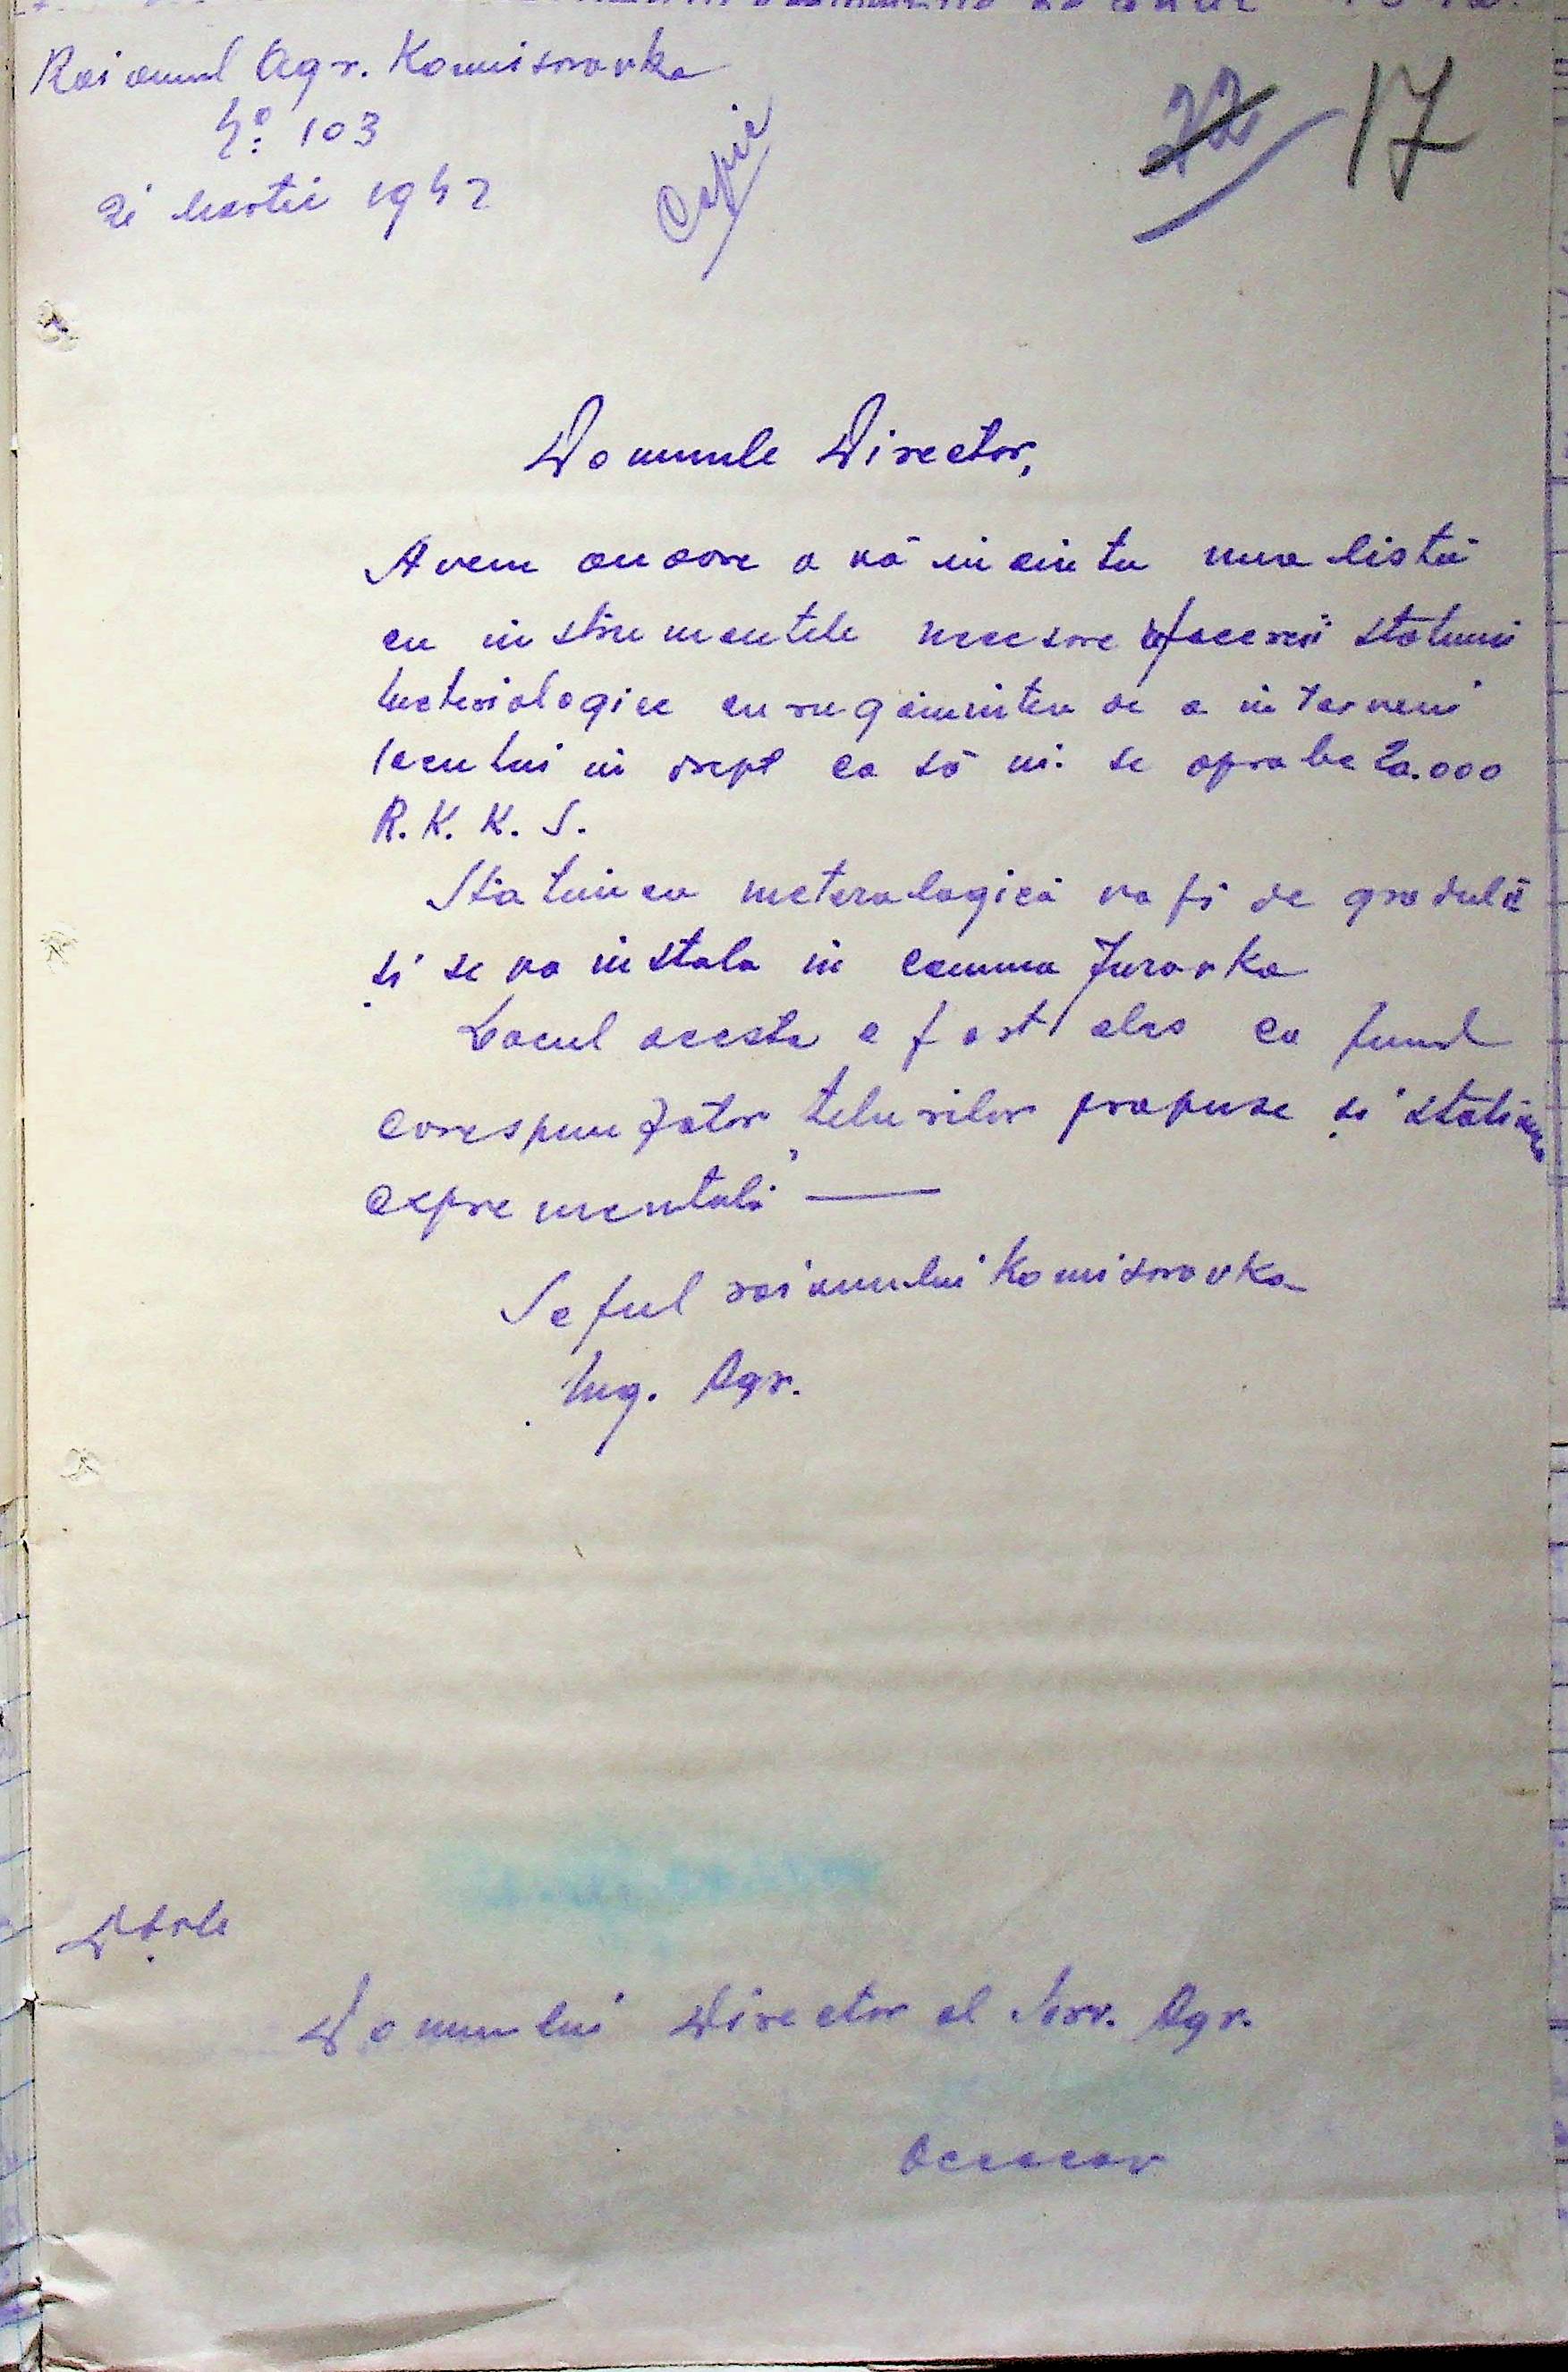 Raionul Agr. Komisarovka
No. 103
21 Martie 1942
Copie
22 17
Domnule Director,
Avem onoare a vă înainta una listă
cu instrumentele necesare refacerii statiunii
Meteriologice cu rugămintea de a interveni
locului in drept ca să ni se aprobe 20.000
R.K.K.S.
Statiunea meterologică va fi de gradul II
și se va instala in comuna Jurovka
Locul acesta a fost ales ca fiind
corespunzator țelurilor propuse și statiunei
exprementali —
Seful raionului Komisarovka
Ing. Agr.
D-sale
Domnului Director al Serv. Agr.
Oceacov